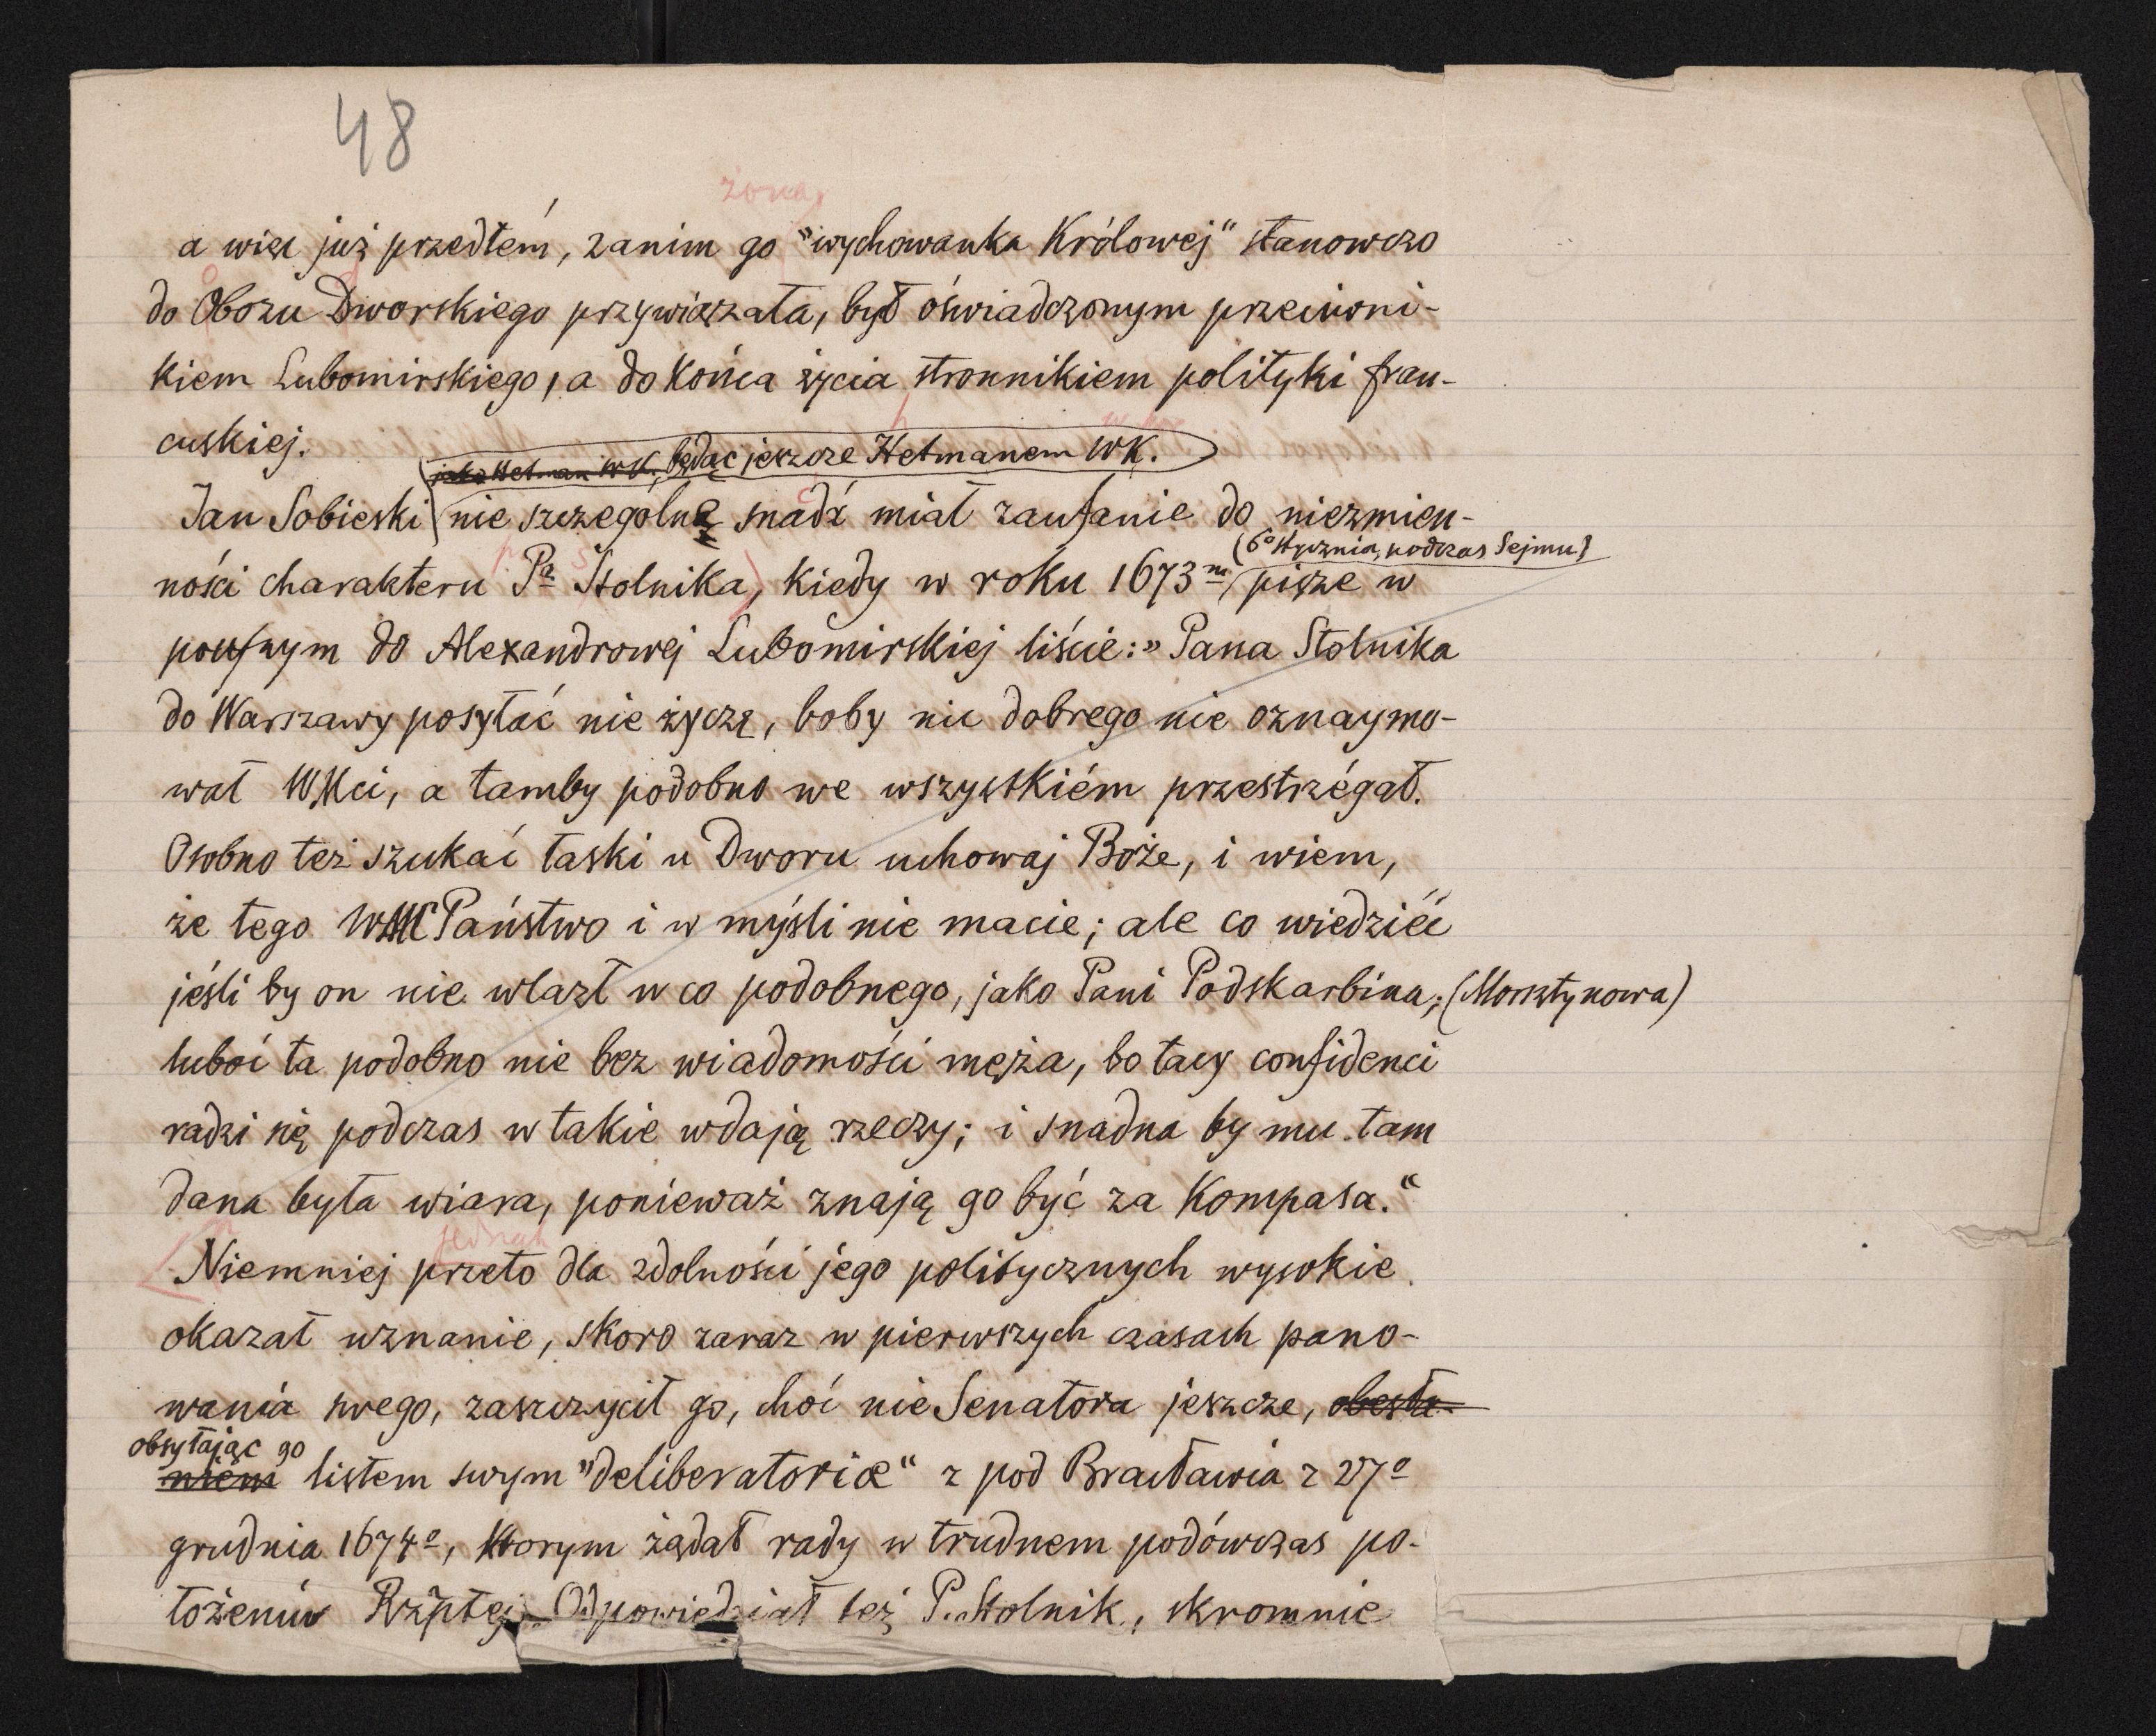 48
żona,
a więc już przedtém, zanim go "wychowanka Królowej" stanowczo
do Obozu Dworskiego przywiązała, był oświadczonym przeciwni-
kiem Lubomirskiego, a do końca życia stronnikiem polityki fran-
cuskiej.
jako Hetman WK, będąc jeszcze Hetmanem WK.
Jan Sobieski nie szczególne snadź miał zaufanie do niezmien-
(6º stycznia, podczas Sejmu)
ności charakteru Pª Stolnika, kiedy w roku 1673m pisze w
poufnym do Alexandrowej Lubomirskiej liście: "Pana Stolnika
do Warszawy posyłać nie życzę, boby nic dobrego nie oznaymo-
wał WMci, a tamby podobno we wszystkiém przestrzégał.
Osobno też szukać łaski u Dworu uchowaj Boże, i wiem,
że tego WMć Państwo i w myśli nie macie; ale co wiedzieć
jeśli by on nie wlazł w co podobnego, jako Pani Podskarbina; (Morsztynowa)
luboć ta podobno nie bez wiadomości męża, bo tacy confidenci
radzi się podczas w takie wdają rzeczy; i snadna by mu tam
dana była wiara, ponieważ znają go być za Kompasa."
jednak
Niemniej przeto dla zdolności jego politycznych wysokie
okazał uznanie, skoro zaraz w pierwszych czasach pano-
wania swego, zaszczycił go, choć nie Senatora jeszcze, obesła-
obsyłając go
niem listem swym "deliberatoriæ" z pod Bracławia z 27º
grudnia 1674º, którym żądał rady w trudnem podówczas po-
łożeniu Rzptej. Odpowiedział też P. Stolnik, skromnie